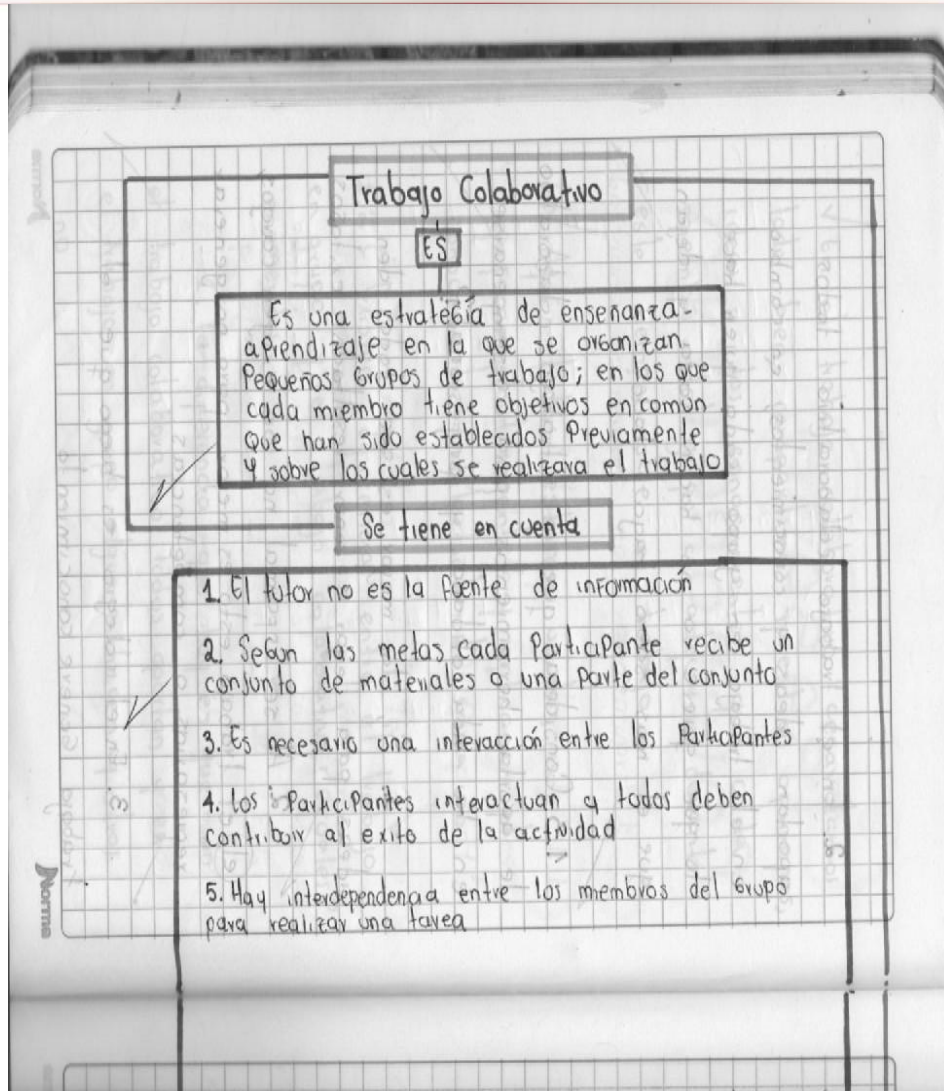 Trabajo Colaborativo
ES
Es una estrategia de enseñanza-
aprendizaje en la que se organizan
Pequeños Grupos de trabajo; en los que
cada miembro tiene objetivos en común
que han sido establecidos Previamente
y sobre los cuales se realizara el trabajo
Se tiene en cuenta
1. El tutor no es la fuente de información
2. Según las metas cada Participante recibe un
conjunto de materiales o una parte del conjunto
3. Es necesario una interacción entre los Participantes
4. los Participantes interactuan y todos deben
contribuir al exito de la actividad
5. Hay interdependencia entre los miembros del Grupo
para realizar una tarea
Norma